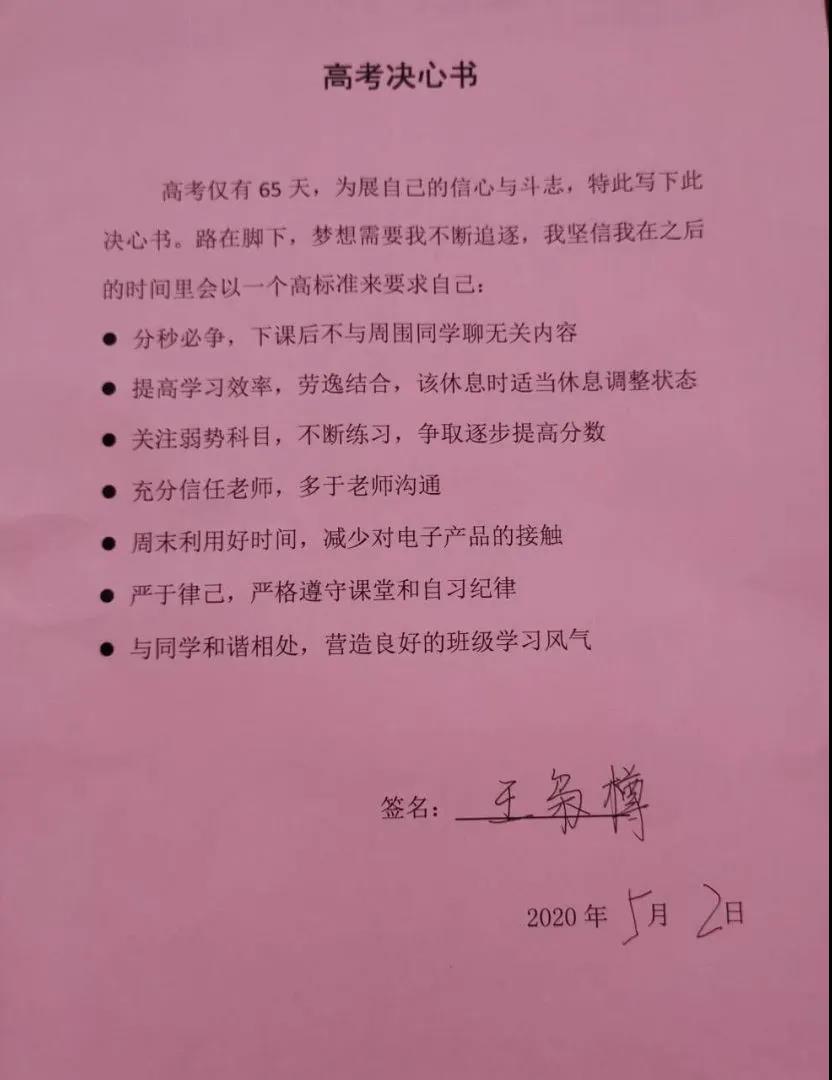 高考决心书
高考仅有 65 天，为展自己的信心与斗志，特此写下此
决心书。路在脚下，梦想需要我不断追逐，我坚信我在之后
的时间里会以一个高标准来要求自己：
● 分秒必争，下课后不与周围同学聊无关内容
● 提高学习效率，劳逸结合，该休息时适当休息调整状态
● 关注弱势科目，不断练习，争取逐步提高分数
● 充分信任老师，多于老师沟通
● 周末利用好时间，减少对电子产品的接触
● 严于律己，严格遵守课堂和自习纪律
● 与同学和谐相处，营造良好的班级学习风气
签名：王 樽
2020 年 5月 2日